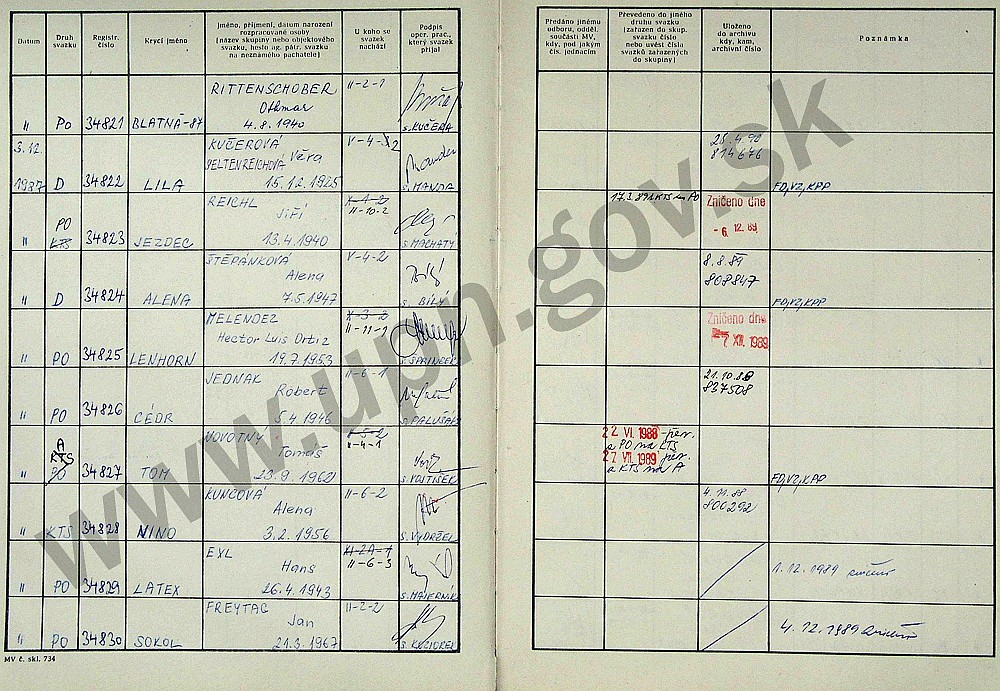 Datum
Druh svazku
Registr. číslo
Krycí jméno
Jméno, příjmení, datum narození rozpracované osoby (název skupiny nebo objektového svazku, heslo ag. pátr. svazku na neznámého pachatele)
U koho se svazek nachází
Podpis oper. prac., který svazek přijal
Předáno jinému odboru, odděl. součásti MV, kdy, pod jakým čís. jednacím
Převedeno do jiného druhu svazku (zařazen do skup. svazku číslo nebo uvést čísla svazků zařazených do skupiny)
Uloženo do archivu kdy, kam, archivní číslo
Poznámka
" PO 34821 BLATNÁ-87 RITTENSCHOBER II-2-1
Othmar
4.8.1940 s. KUČERA
3.12. KUČEROVÁ V-4-2 25.4.90
YELTENREICHOVÁ Věra 814676
1987 D 34822 LILA 15.12.1925 s. MANDA FD,VZ,KPP
REICHL 17.3.89 KTS na PO Zničeno dne
PO Jiří II-10-2 -6. 12. 89
" KTS 34823 JEZDEC 13.4.1940 s. MACHATÝ
ŠTĚPÁNKOVÁ V-4-2 8.8.89
Alena 808847
" D 34824 ALENA 7.5.1947 s. BÍLÝ FD,VZ,KPP
MELENDEZ X-3-2 Zničeno dne
Hector Luis Ortiz II-11-1 7 XII. 1989
" PO 34825 LENHORN 19.7.1953 s. SPRINCER
JEDNAK II-6-1 21.10.88
Robert 837508
" PO 34826 CÉDR 5.4.1946
A NOVOTNÝ X-5-2 22 VI. 1988 - přev.
KTS Tomáš II-4-1 a PO na KTS
27 VII. 1989 přev.
" PO 34827 TOM 23.9.1962 s. VOJTÍŠEK a KTS na A FD,VZ,KPP
KUNCOVÁ II-6-2 4.11.88
Alena 800292
" KTS 34828 NINO 3.2.1956 s. VYDRŽEL
EXL
Hans II-6-3 1.12.1989 zničení
" PO 34829 LATEX 26.4.1943 s. MAJERNÍK
FREYTAG II-2-2
Jan 4.12.1989 zničení
" PO 34830 SOKOL 21.3.1967
MV č. skl. 734
www.upn.gov.sk